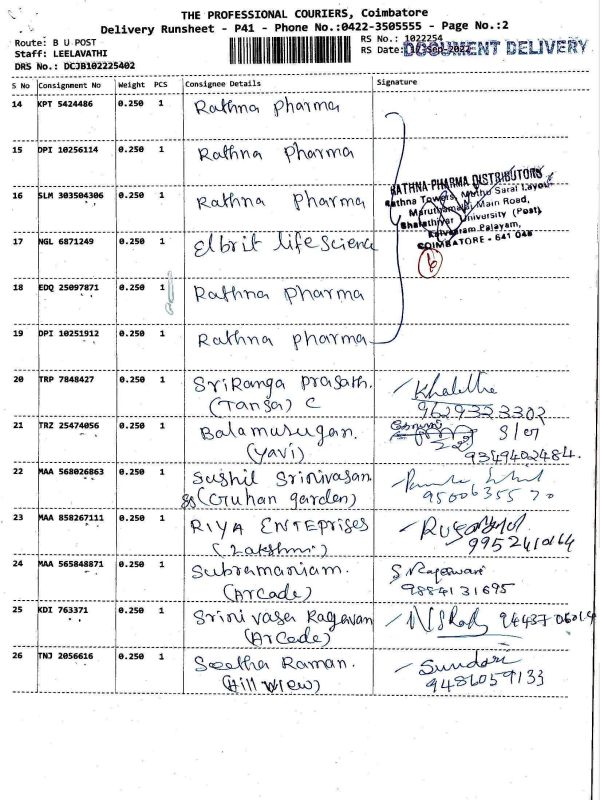 THE PROFESSIONAL COURIERS, Coimbatore
Delivery Runsheet - P41 - Phone No.:0422-3505555 - Page No.:2
Route: B U POST
Staff: LEELAVATHI
DRS No.: DCJB102225402
RS No.: 1022254
RS Date:
DOCUMENT DELIVERY
S No Consignment No Weight PCS Consignee Details Signature
14 KPT 5424486 0.250 1 Rathna Pharma
15 DPI 10256114 0.250 1 Rathna Pharma
16 SLM 303504306 0.250 1 Rathna Pharma
RATHNA PHARMA DISTRIBUTORS
Rathna Towers, Muthu Saral Layout
Maruthamalai Main Road,
Bharathiyar University (Post)
Kalveeram Palayam,
COIMBATORE - 641 046
6
17 NGL 6871249 0.250 1 Elbrit life Science
18 EDQ 25097871 0.250 1 Rathna Pharma
19 DPI 10251912 0.250 1 Rathna pharma
20 TRP 7848427 0.250 1 SriRanga prasath.
(Tansa) C
9629323302
21 TRZ 25474056 0.250 1 Balamurugan.
(Yavi)
9349402484.
22 MAA 568026863 0.250 1 Sushil Srinivasan
(Guhan garden)
23 MAA 858267111 0.250 1 RIYA ENTEPrises
(Lakshmi)
24 MAA 565848871 0.250 1 Subramaniam.
(Arcade)
S Rajeswari
9884131695
25 KDI 763371 0.250 1 Srinivasa Ragavan
(Arcade)
26 TNJ 2056616 0.250 1 Seetha Raman.
(Hill view)
Sundari
9486059133